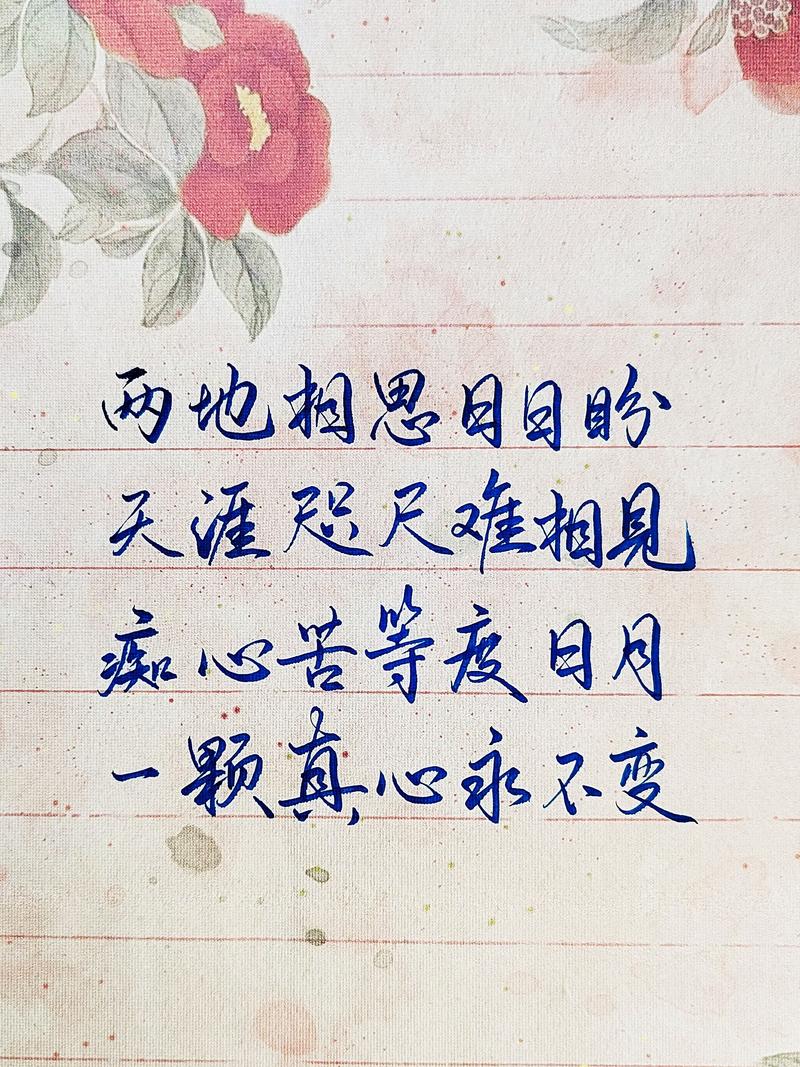 两地相思日日盼
天涯咫尺难相见
痴心苦等度日月
一颗真心永不变